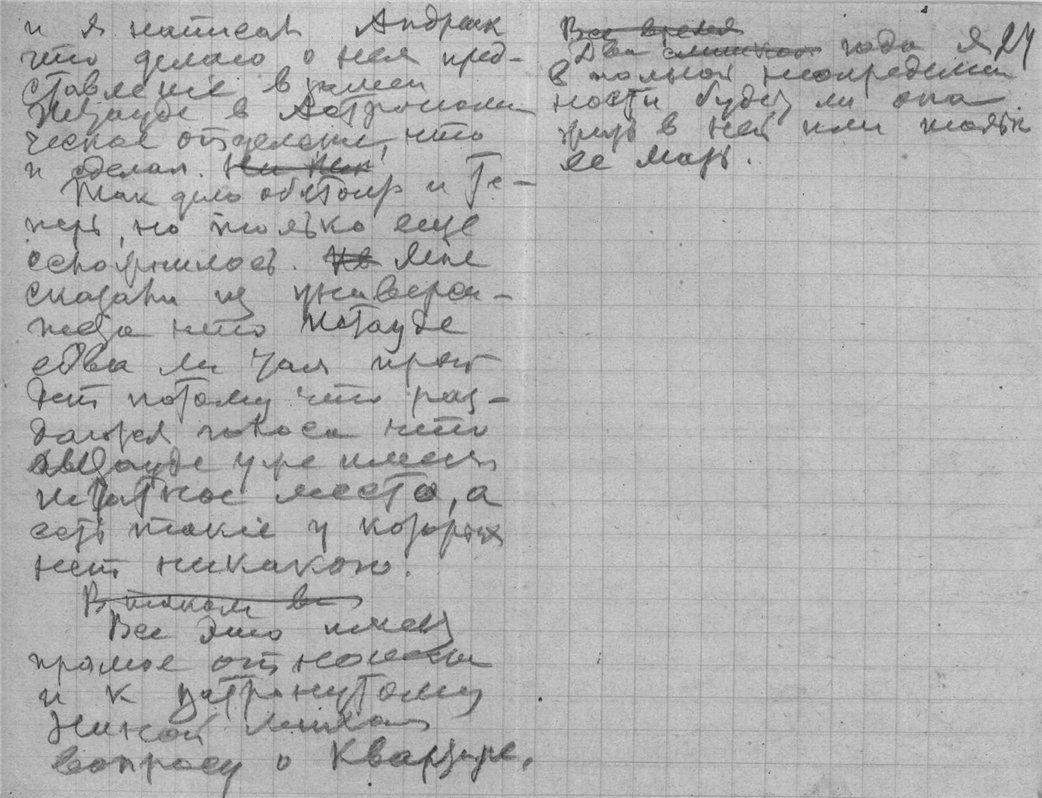 и я написал Андрею
что делаю о ней пред-
ставление в
в Астрономи
ческое отделение, что
и сделал.
Так дело обстоит и Те-
перь, но только еще
осложнилось. Мне
сказали из универси-
тета что
едва ли там прой
дет потому что раз-
даются голоса что
уже имеет
штатное место, а
есть такие у которых
нет никакого.
В таком
Все это имеет
прямое отношение
и к затронутому
Ниной
вопросу о Квартире.
Все время
Два слишком года я 24
в полной неопределен
ности будет ли она
жить в ней или только
ее мать.